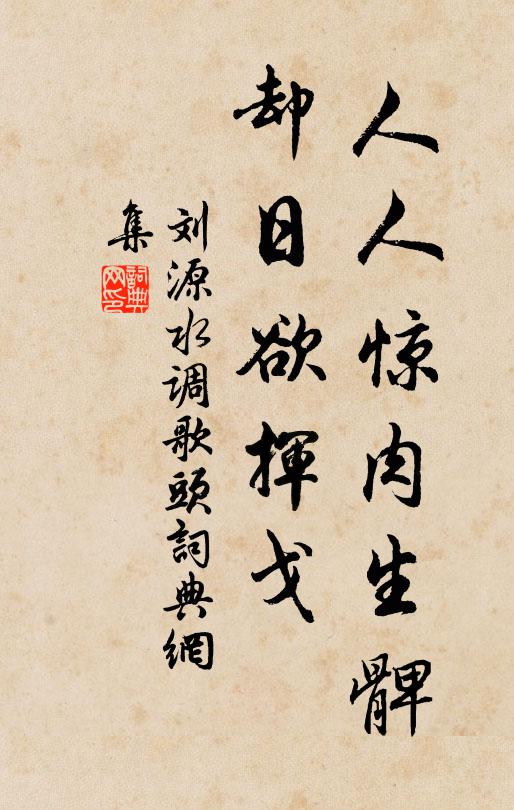 人人惊肉生髀
却日欲揮戈
刘源水调歌頭詞典網
集
詞典
网印